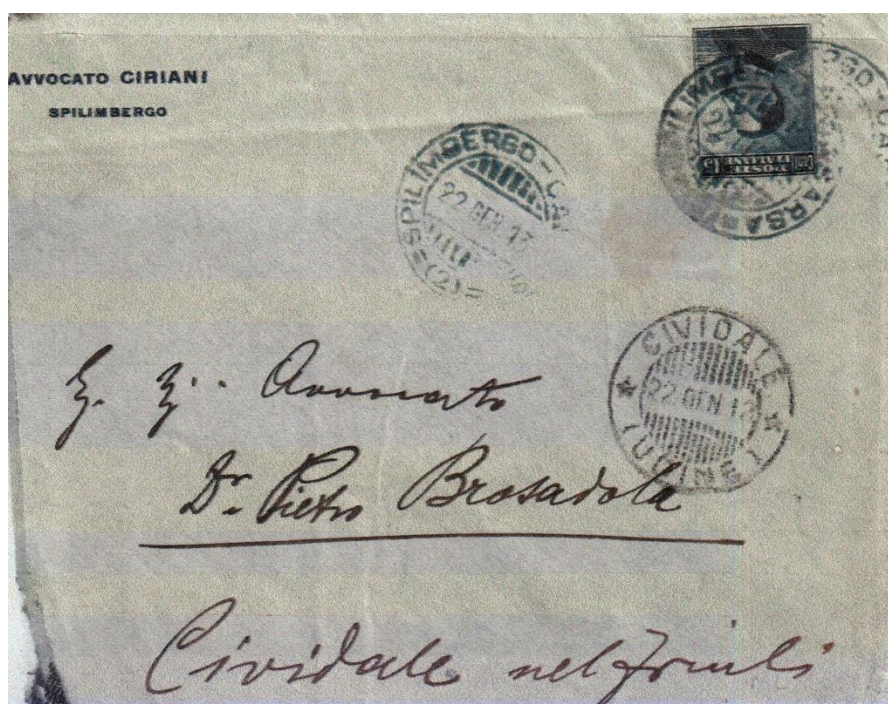 AVVOCATO CIRIANI
SPILIMBERGO
SPILIMBERGO - CA
22 GEN. 13
=(2)=
CIVIDALE
22 GEN 13
(UDINE)
POSTE ITALIANE
15
Avvocato
Dr. Pietro Brosadola
Cividale nel Friuli